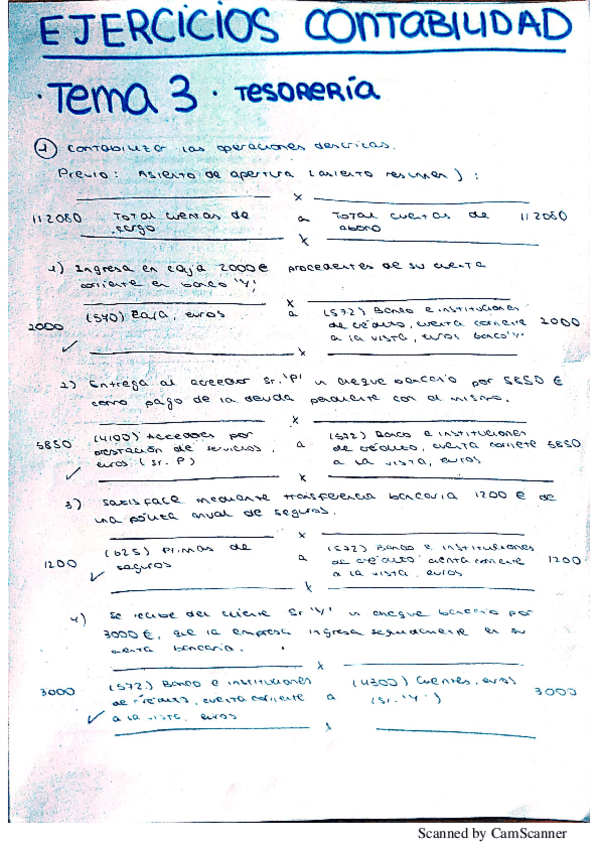 EJERCICIOS CONTABILIDAD
· Tema 3 · TESORERÍA
1 Contabilizar las operaciones descritas.
Previo: Asiento de apertura (asiento resumen):
x
112080 Total cuentas de cargo a Total cuentas de abono 112080
x
1) Ingresa en caja 2000€ procedentes de su cuenta
corriente en banco 'Y'.
x
(570) Caja, euros a (572) Banco e instituciones
2000 de crédito, cuenta corriente 2000
✓ a la vista, euros banco 'Y'
x
2) Entrega al acreedor Sr. 'P' un cheque bancario por 5850 €
como pago de la deuda pendiente con el mismo.
x
5850 (4100) Acreedores por a (572) Banco e instituciones
prestación de servicios, de crédito, cuenta corriente 5850
✓ euros (Sr. P) a la vista, euros
x
3) Satisface mediante transferencia bancaria 1200 € de
una póliza anual de seguros.
x
1200 (625) Primas de a (572) Banco e instituciones
✓ seguros de crédito, cuenta corriente 1200
a la vista, euros
x
4) Se recibe del cliente Sr 'Y' un cheque bancario por
3000 €, que la empresa ingresa seguidamente en su
cuenta bancaria.
x
3000 (572) Banco e instituciones (4300) Clientes, euros 3000
de crédito, cuenta corriente a (Sr. 'Y')
✓ a la vista, euros
x
Scanned by CamScanner